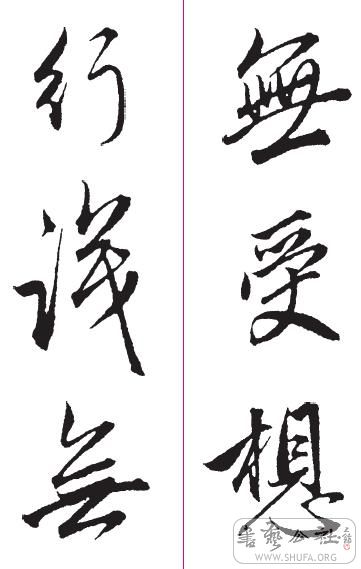 無受想
行識無
書藝公社
WWW.SHUFA.ORG